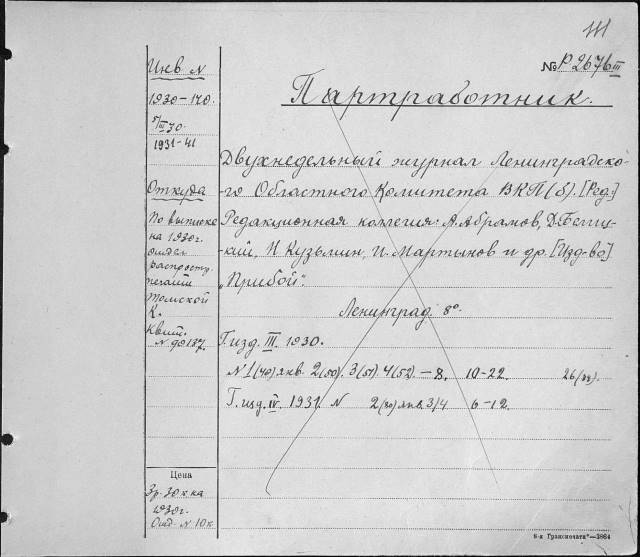 № Р 2676 III
Инв. N
1930-170.
5/III 30.
1931-41
Партработник.
Двухнедельный журнал Ленинградско-
го Областного Комитета ВКП(б). [Ред.]
Редакционная коллегия: А. Абрамов, Д. Белиц-
кий, И. Кузьмин, И. Мартынов и др. [Изд-во]
"Прибой".
Ленинград. 8°.
Откуда
По выписке
на 1930 г.
отдел
распростр.
печати
Томской
К.
Квит.
N 90187.
Г. изд. III. 1930.
N 1(49) янв. 2(50). 3(51) 4(52). – 8. 10-22. 26
Г. изд. IV. 1931. N 2 янв. 3/4 6-12.
Цена
1930 г.
Отд. N 10 к.
6-я Гранспечати"—3864